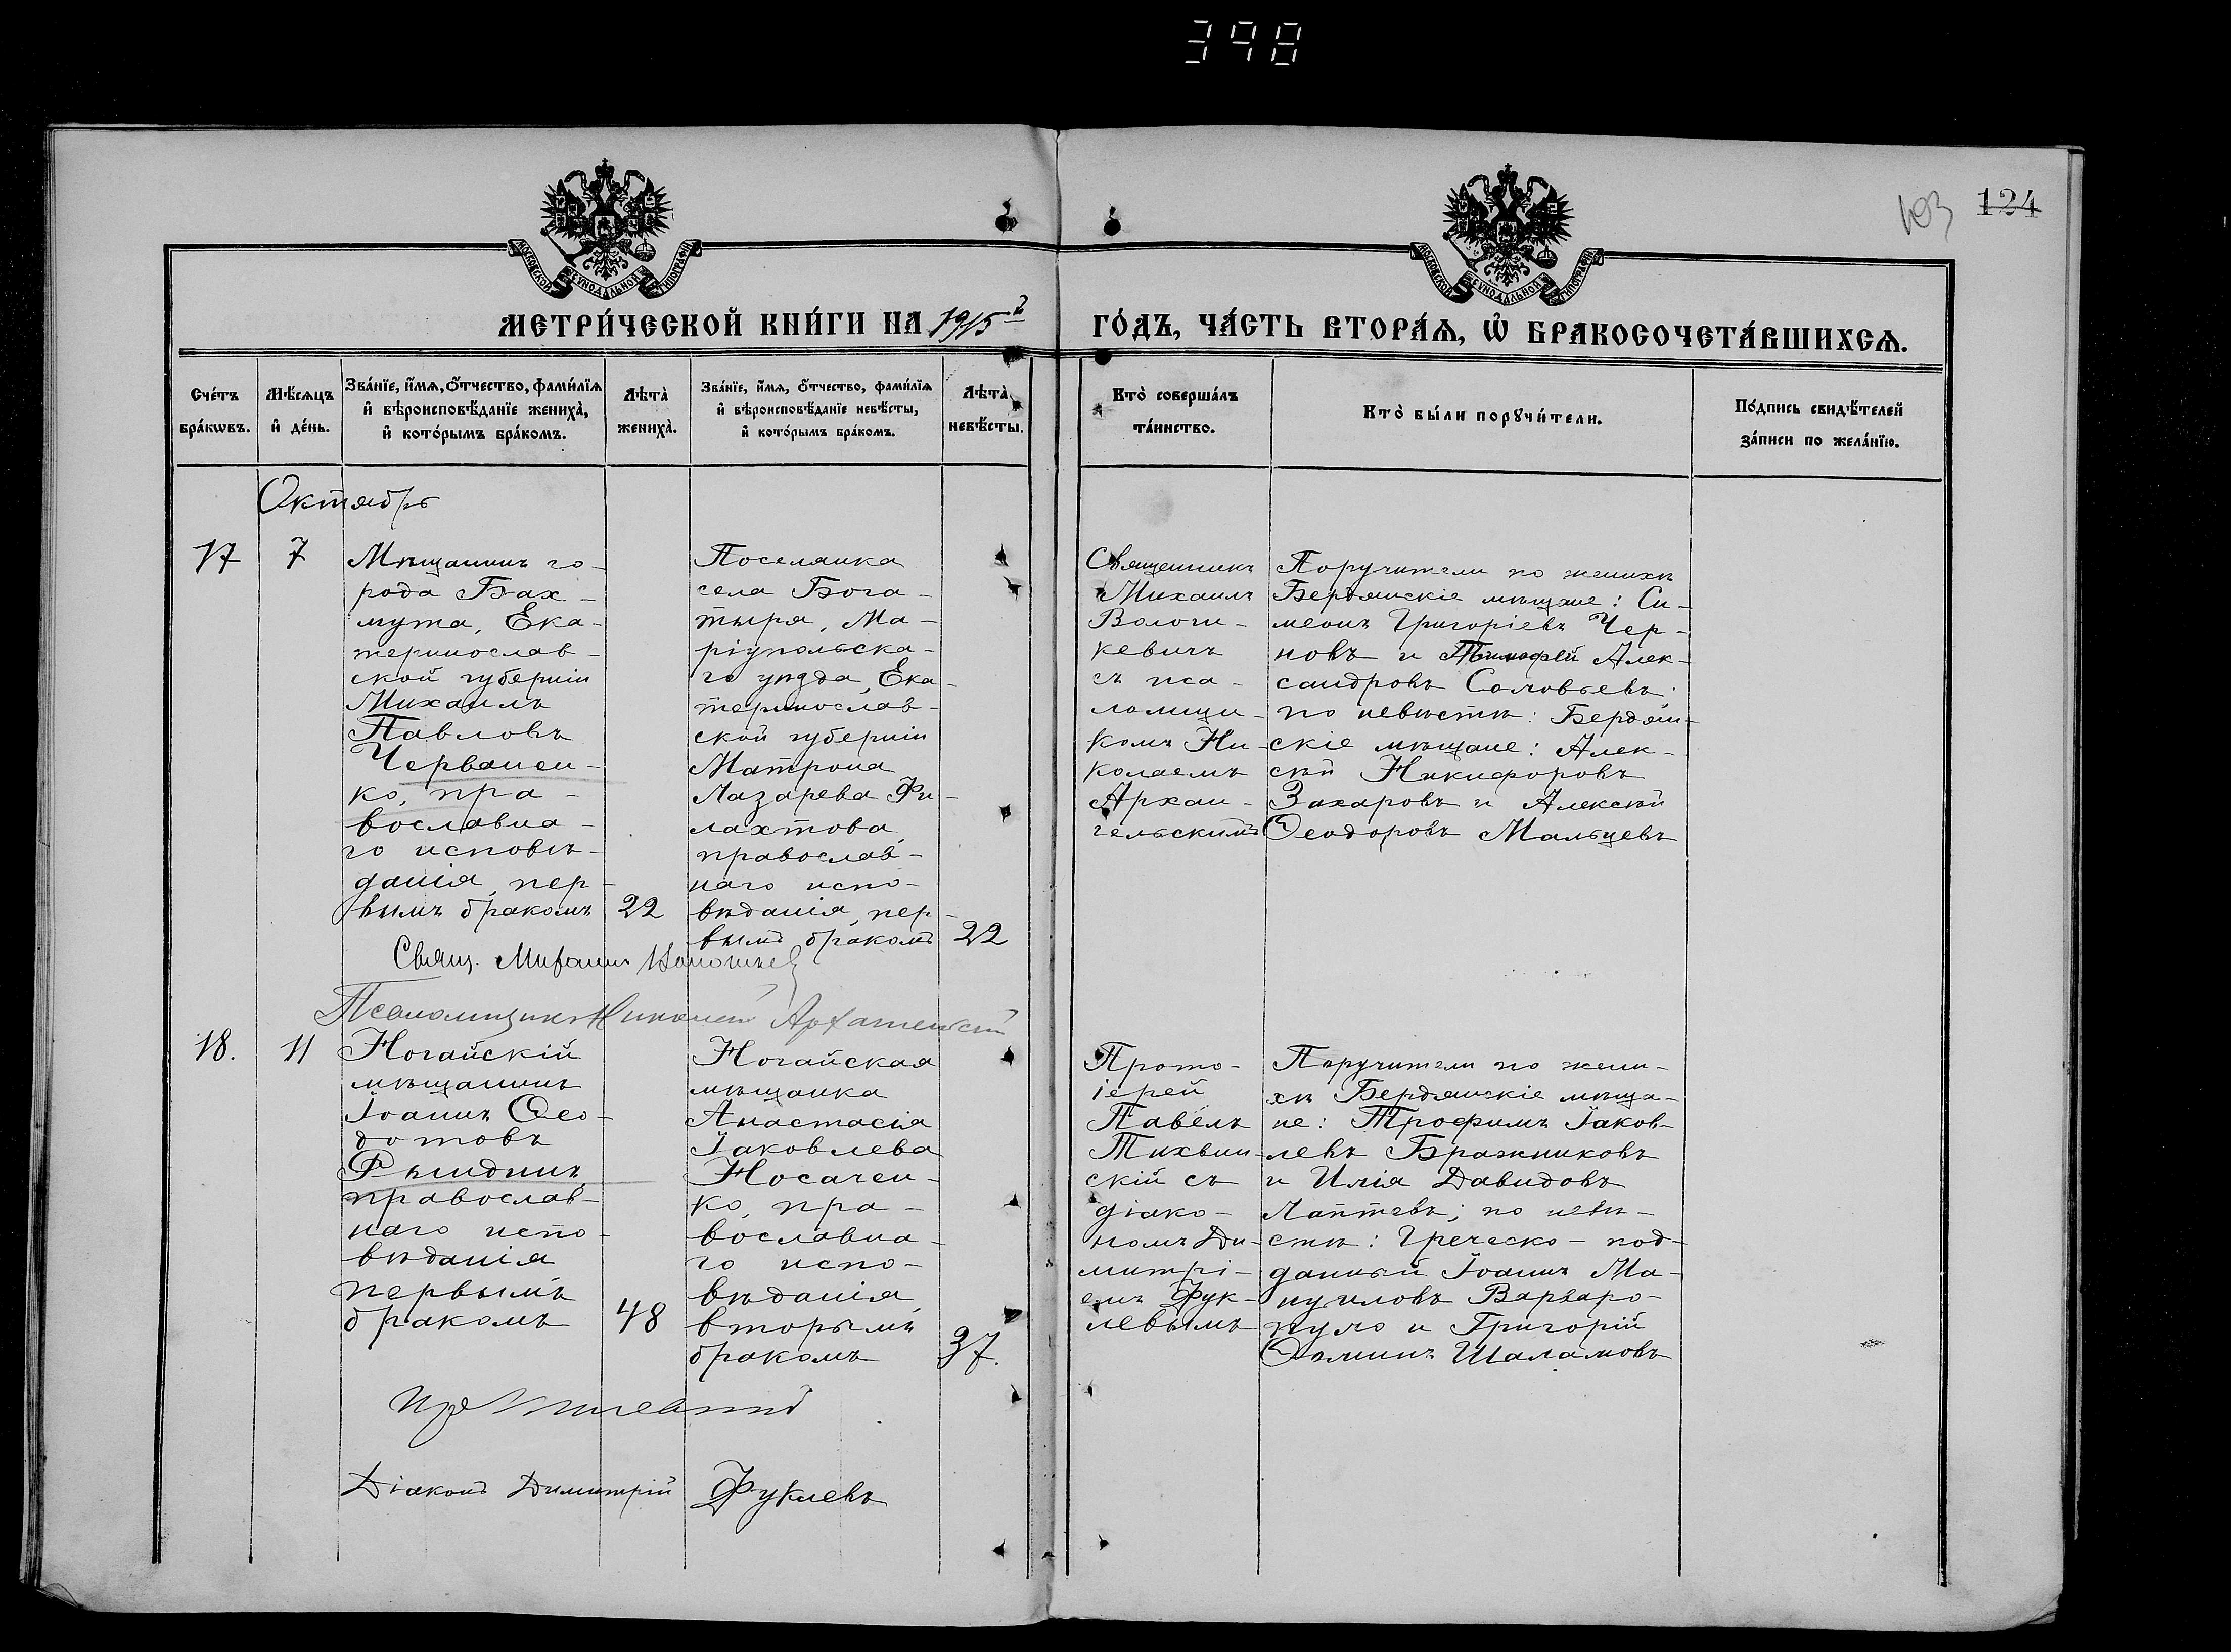 398
103 124
МОСКОВСКОЙ СѴНОДАЛЬНОЙ ТИПОГРАФІИ
МОСКОВСКОЙ СѴНОДАЛЬНОЙ ТИПОГРАФІИ
МЕТРИ́ЧЕСКОЙ КНИ́ГИ НА 1915й
ГО́ДЪ, ЧА́СТЬ ВТОРА́Ѧ, Ѡ҆ БРАКОСОЧЕТА́ВШИХСѦ.
Сче́тъ
бра́кѡвъ.
Мѣ́сѧцъ
и҆ де́нь.
Зва́нїе, и҆́мѧ, ѻ҆́тчество, фами́лїѧ
и҆ вѣроисповѣ́данїе жениха̀,
и҆ кото́рымъ бра́комъ.
Лѣта̀
жениха̀.
Зва́нїе, и҆́мѧ, ѻ҆́тчество, фами́лїѧ
и҆ вѣроисповѣ́данїе невѣ́сты,
и҆ кото́рымъ бра́комъ.
Лѣта̀
невѣ́сты.
Кто̀ соверша́лъ
та́инство.
Кто̀ бы́ли порꙋчи́тели.
По́дпись свидѣ́телей
за́писи по жела́нїю.
Октябрь
17
7
Мѣщанинъ го-
рода Бах-
мута, Ека-
теринослав-
ской губерніи
Михаилъ
Павловъ
Червонен-
ко, пра-
вославна-
го исповѣ-
данія, пер-
вымъ бракомъ
22
Поселянка
села Бога-
тыря, Ма-
ріупольска-
го уѣзда, Ека-
теринослав-
ской губерніи
Матрона
Лазарева Фи-
лахтова
православ-
наго испо-
вѣданія, пер-
вымъ бракомъ
22
Священникъ
Михаилъ
Вологи-
кевичъ
съ пса-
ломщи-
комъ Ни-
колаемъ
Архан-
гельскимъ
Поручители по женихѣ
Бердянскіе мѣщане: Си-
меонъ Григоріевъ Чер-
новъ и Тимофей Алек-
сандровъ Соловьевъ.
по невѣстѣ: Бердян-
скіе мѣщане: Алек-
сѣй Никифоровъ
Захаровъ и Алексѣй
Ѳеодоровъ Мальцевъ
Свящ. Михаилъ
Псаломщикъ Николай Архангельскій
18.
11
Ногайскій
мѣщанинъ
Іоаннъ Ѳео-
дотовъ
православ-
наго испо-
вѣданія
первымъ
бракомъ
48
Ногайская
мѣщанка
Анастасія
Іаковлева
Носачен-
ко, пра-
вославна-
го испо-
вѣданія,
вторымъ
бракомъ
37.
Прото-
іерей
Павелъ
Тихвин-
скій съ
діако-
номъ Ди-
митрі-
емъ Фук-
левымъ
Поручители по жени-
хѣ Бердянскіе мѣща-
не: Трофимъ Іаков-
левъ Бражниковъ
и Илія Давидовъ
Лаптевъ; по невѣ-
стѣ: Греческо-под-
данный Іоаннъ Ма-
нуиловъ Варваро-
пуло и Григорій
Ѳоминъ Шаламовъ
Діаконъ Димитрій Фуклевъ